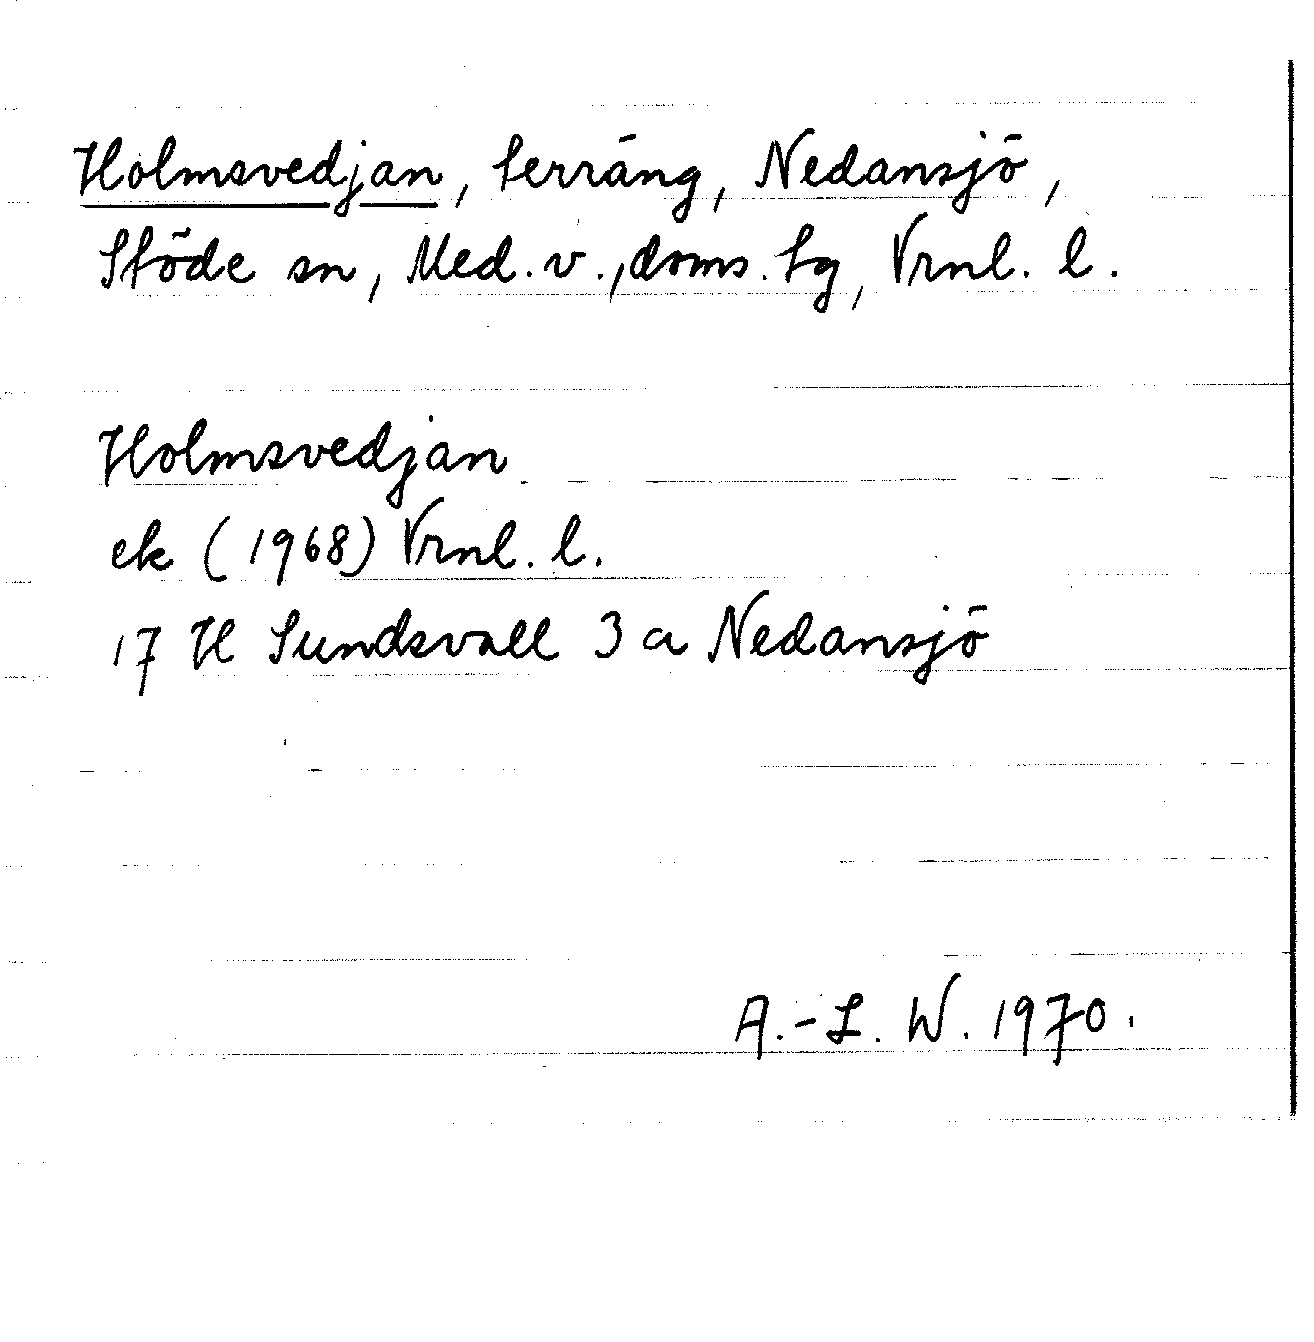 Holmsvedjan, terräng, Nedansjö,
Stöde sn, Med. v., doms. tg, Vrnl. l.
Holmsvedjan
ek (1968) Vrnl. l.
17 H Sundsvall 3 a Nedansjö
A.-L. W. 1970.